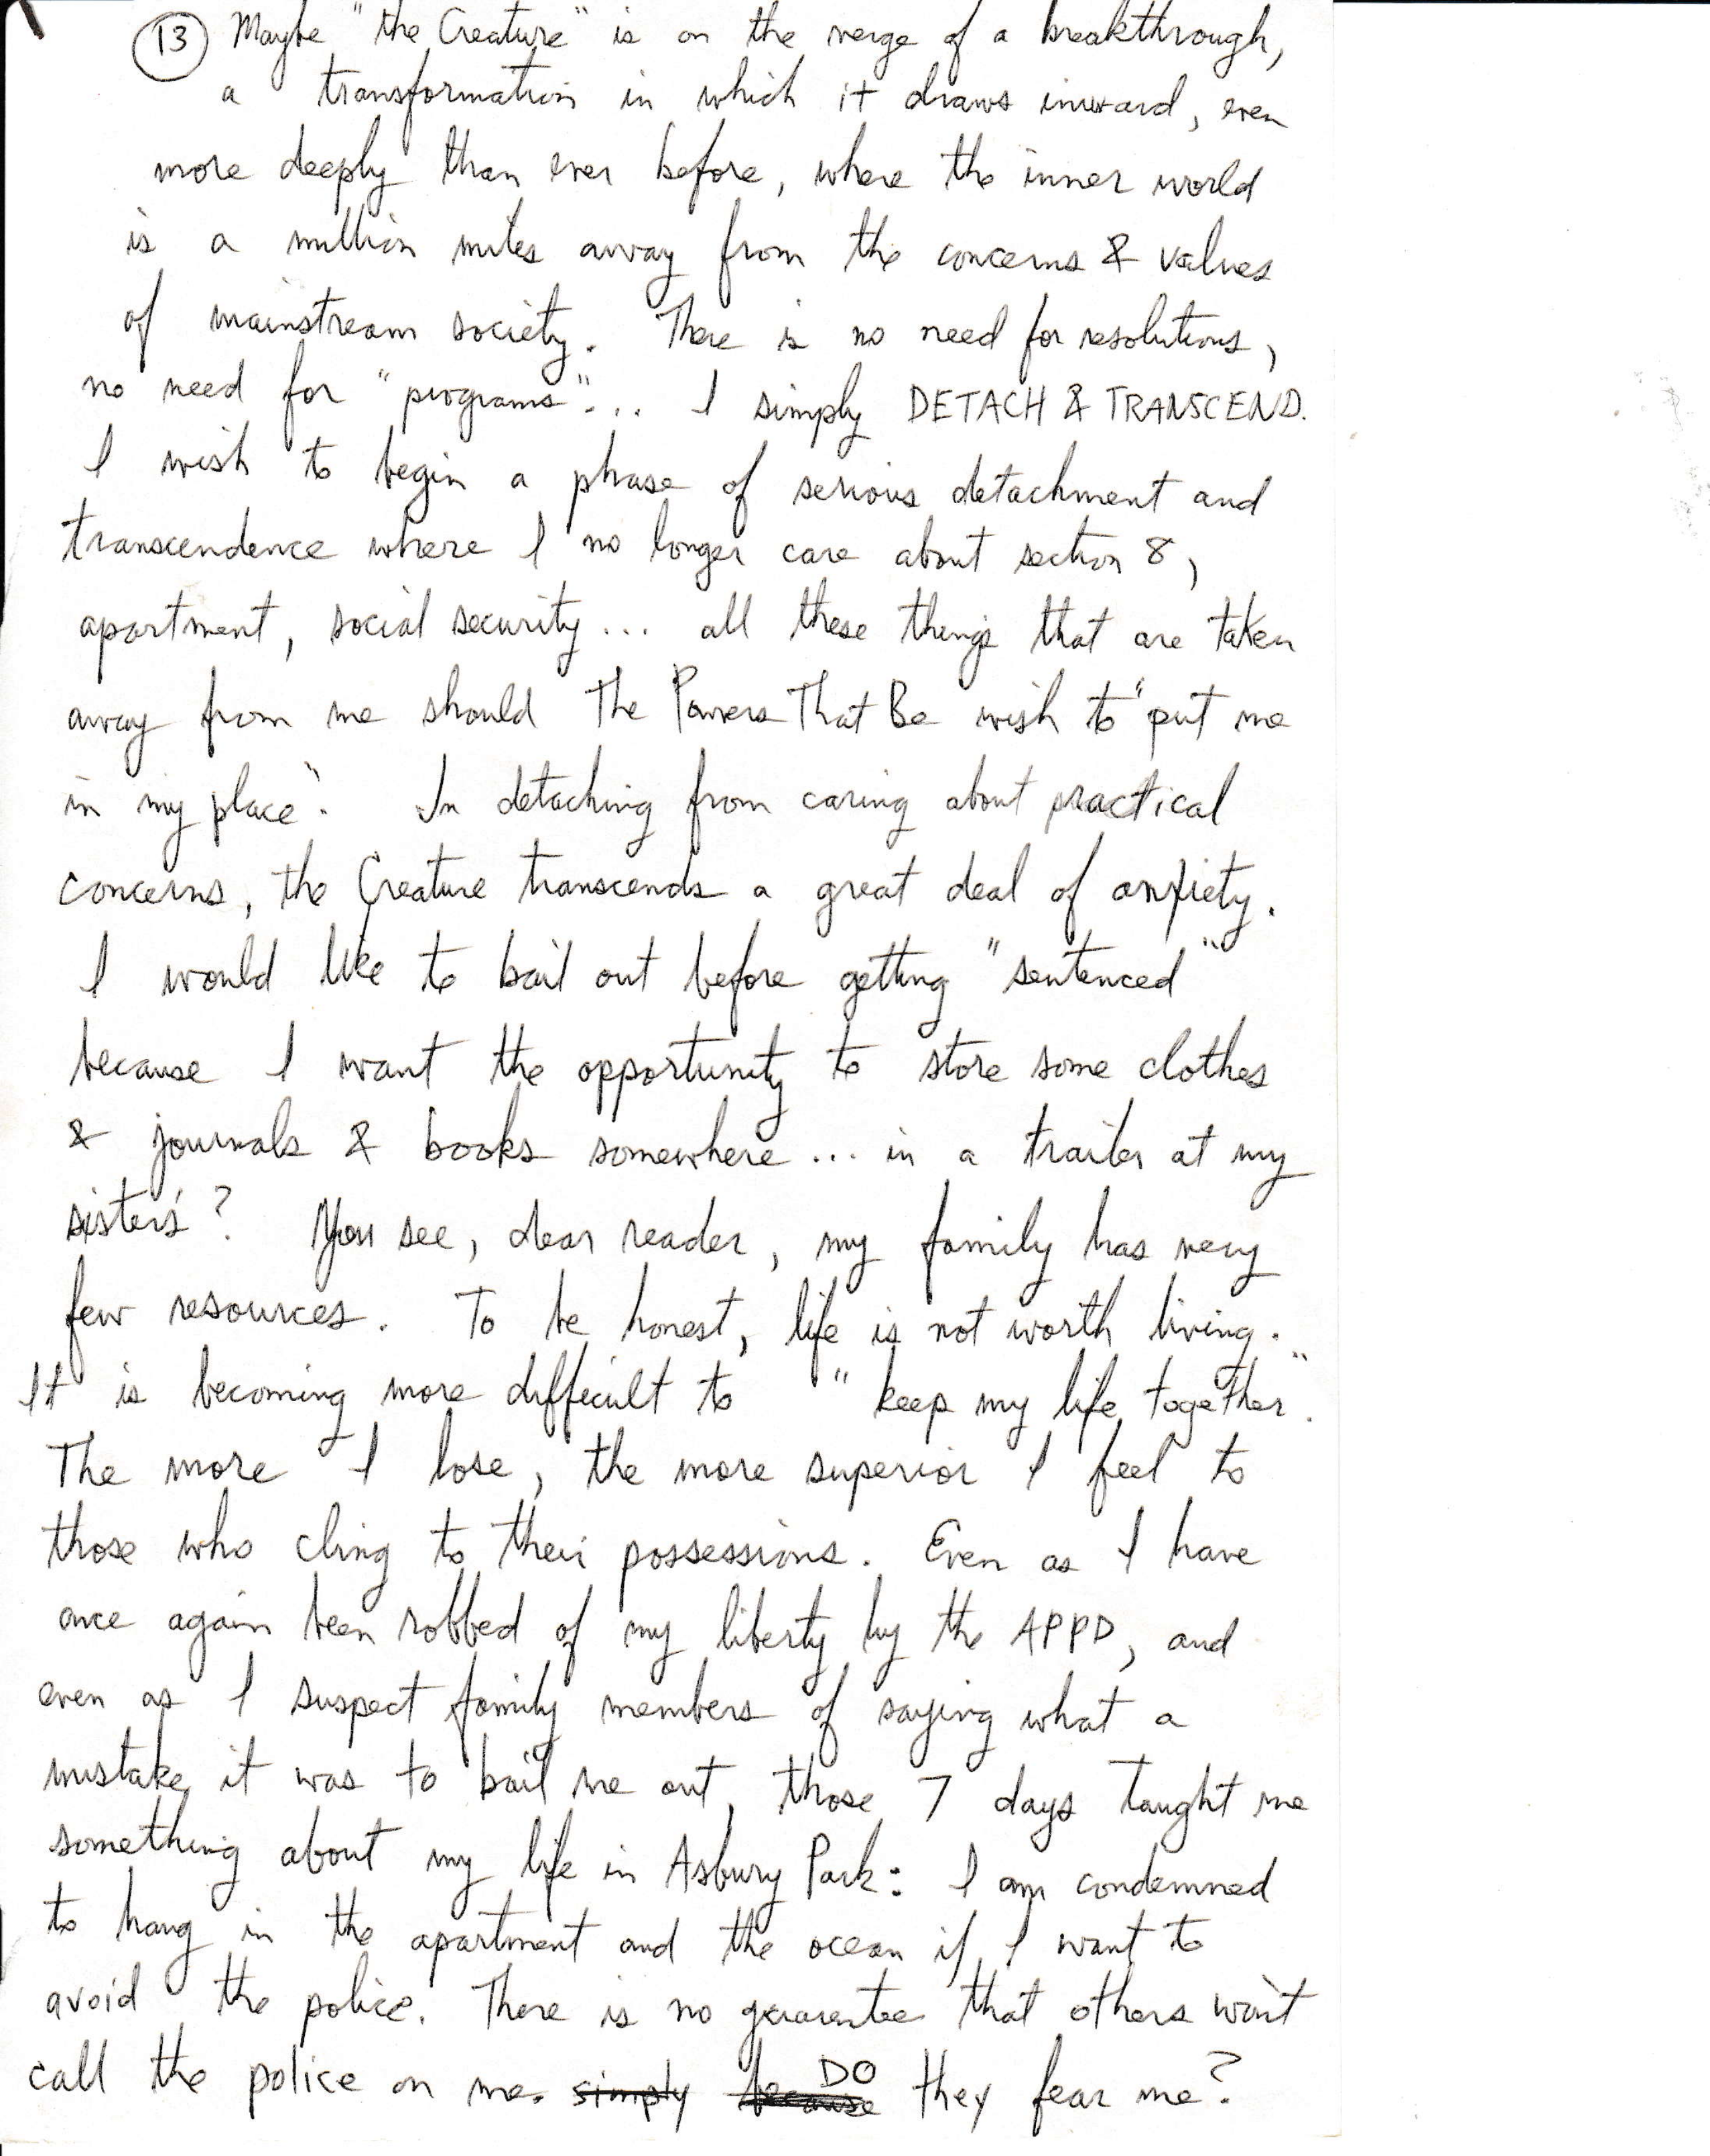 (13) Maybe "the Creature" is on the verge of a breakthrough,
a transformation in which it draws inward, even
more deeply than ever before, where the inner world
is a million miles away from the concerns & values
of mainstream society. There is no need for resolutions,
no need for "programs"... I simply DETACH & TRANSCEND.
I wish to begin a phase of serious detachment and
transcendence where I no longer care about section 8,
apartment, social security... all these things that are taken
away from me should The Powers That Be wish to "put me
in my place". In detaching from caring about practical
concerns, the Creature transcends a great deal of anxiety.
I would like to bail out before getting "sentenced"
because I want the opportunity to store some clothes
& journals & books somewhere... in a trailer at my
sister's? You see, dear reader, my family has very
few resources. To be honest, life is not worth living.
It is becoming more difficult to "keep my life together".
The more I lose, the more superior I feel to
those who cling to their possessions. Even as I have
once again been robbed of my liberty by the APPD, and
even as I suspect family members of saying what a
mistake it was to bail me out, those 7 days taught me
something about my life in Asbury Park: I am condemned
to hang in the apartment and the ocean if I want to
avoid the police. There is no guarantee that others won't
call the police on me. simply because DO they fear me?